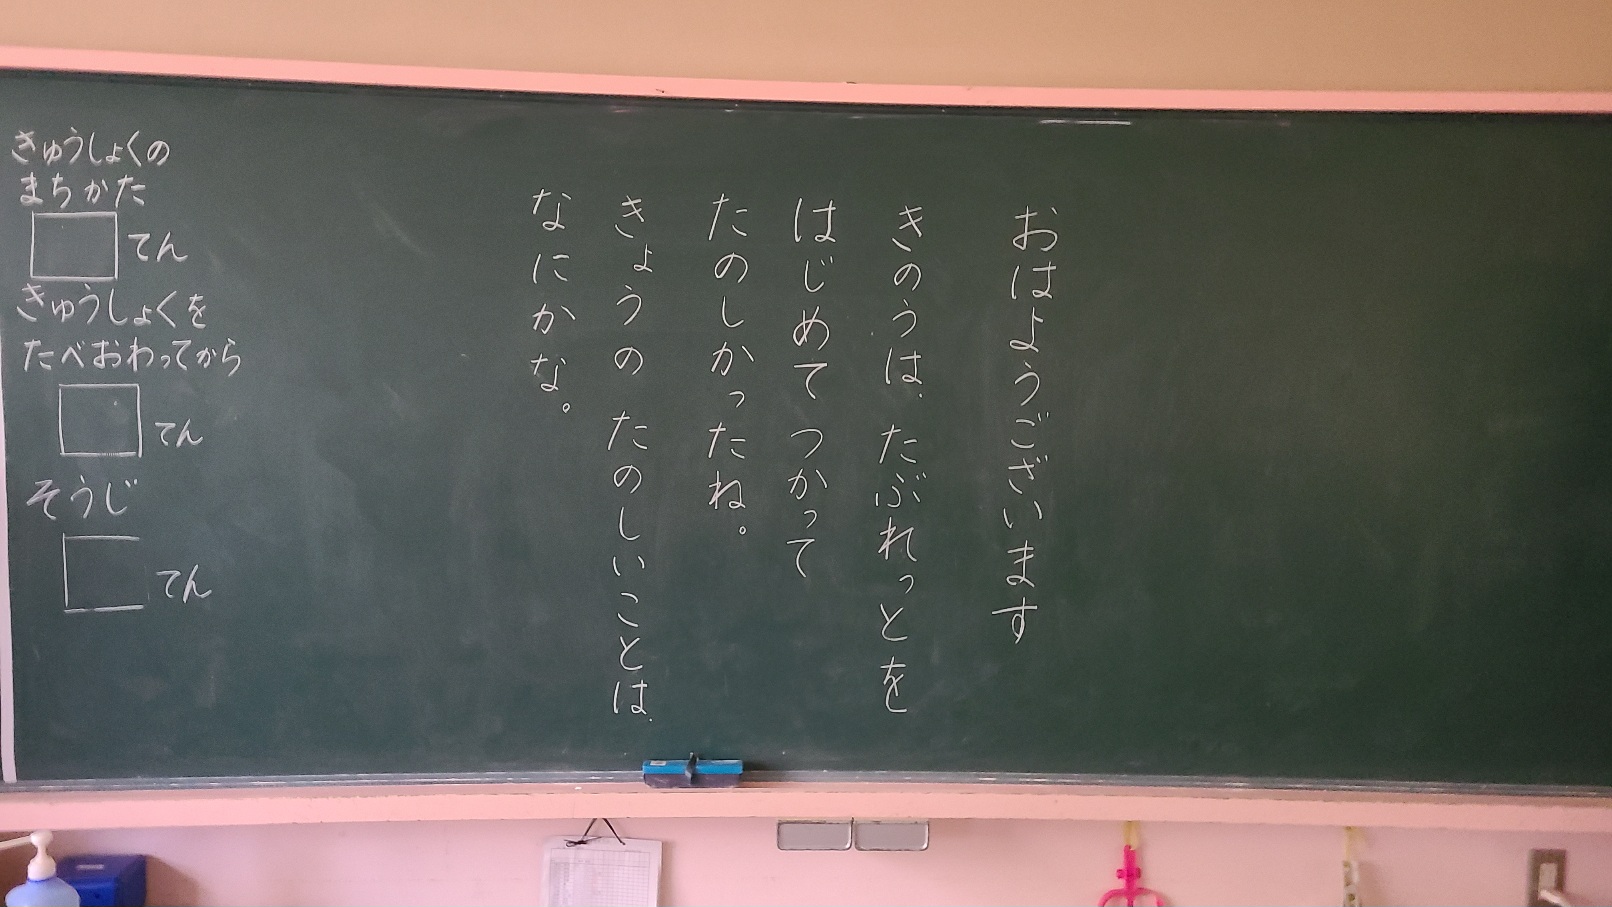 おはようございます
きのうは、たぶれっとを
はじめて つかって
たのしかったね。
きょうの たのしいことは、
なにかな。
きゅうしょくの
まちかた
てん
きゅうしょくを
たべおわってから
てん
そうじ
てん